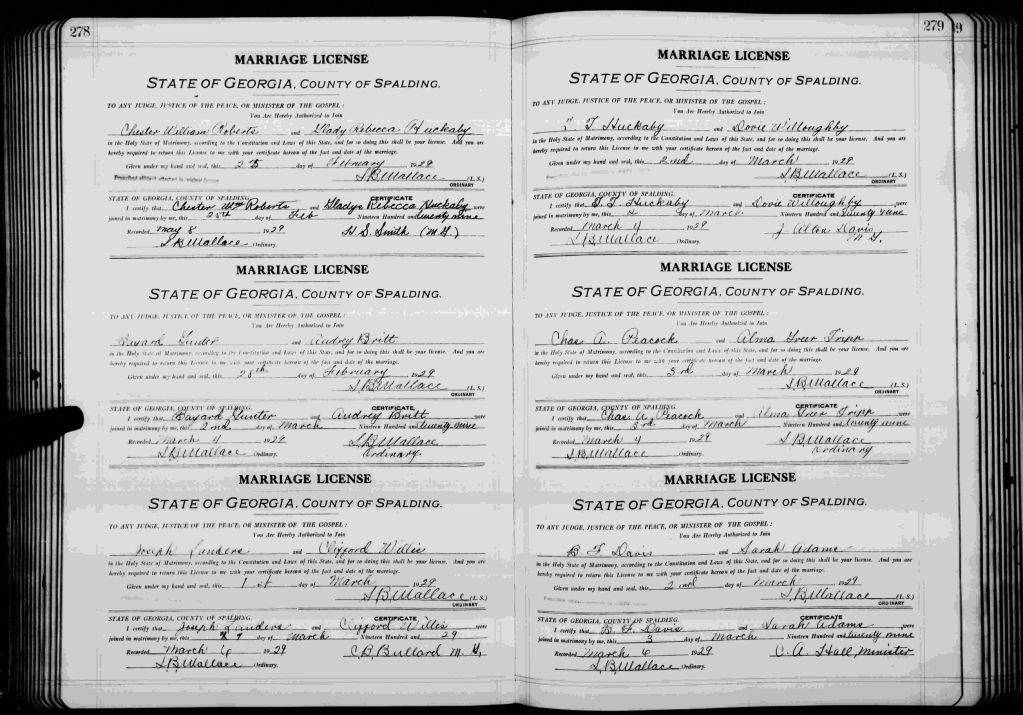 278
MARRIAGE LICENSE
STATE OF GEORGIA, COUNTY OF SPALDING.
TO ANY JUDGE, JUSTICE OF THE PEACE, OR MINISTER OF THE GOSPEL:
You Are Hereby Authorized to Join
Chester William Roberts and Glady Rebecca Huckaby
in the Holy State of Matrimony, according to the Constitution and Laws of this State, and for so doing this shall be your license. And you are
hereby required to return this License to me with your certificate hereon of the fact and date of the marriage.
Given under my hand and seal, this 25 day of February 1929
S.B. Wallace (L. S.)
ORDINARY
STATE OF GEORGIA, COUNTY OF SPALDING. CERTIFICATE
I certify that Chester Wm Roberts and Gladys Rebecca Huckaby were
joined in matrimony by me, this 25th day of Feb Nineteen Hundred and twenty nine
Recorded May 8 1929 H. S. Smith (M.G.)
S.B. Wallace Ordinary.
MARRIAGE LICENSE
STATE OF GEORGIA, COUNTY OF SPALDING.
TO ANY JUDGE, JUSTICE OF THE PEACE, OR MINISTER OF THE GOSPEL:
You Are Hereby Authorized to Join
Bayard Gunter and Audrey Britt
in the Holy State of Matrimony, according to the Constitution and Laws of this State, and for so doing this shall be your license. And you are
hereby required to return this License to me with your certificate hereon of the fact and date of the marriage.
Given under my hand and seal, this 28th day of February 1929
S.B. Wallace (L. S.)
ORDINARY
STATE OF GEORGIA, COUNTY OF SPALDING. CERTIFICATE
I certify that Bayard Gunter and Audrey Britt were
joined in matrimony by me, this 2nd day of March Nineteen Hundred and twenty nine
Recorded March 4 1929 S.B. Wallace
S.B. Wallace Ordinary. Ordinary
MARRIAGE LICENSE
STATE OF GEORGIA, COUNTY OF SPALDING.
TO ANY JUDGE, JUSTICE OF THE PEACE, OR MINISTER OF THE GOSPEL:
You Are Hereby Authorized to Join
Joseph Landers and Clifford Willis
in the Holy State of Matrimony, according to the Constitution and Laws of this State, and for so doing this shall be your license. And you are
hereby required to return this License to me with your certificate hereon of the fact and date of the marriage.
Given under my hand and seal, this 1 st day of March 1929
S.B. Wallace (L. S.)
ORDINARY
STATE OF GEORGIA, COUNTY OF SPALDING. CERTIFICATE
I certify that Joseph Landers and Clifford Willis were
joined in matrimony by me, this day of March Nineteen Hundred and 29
Recorded March 6 1929 C.B. Bullard M.G.
S.B. Wallace Ordinary.
279
MARRIAGE LICENSE
STATE OF GEORGIA, COUNTY OF SPALDING.
TO ANY JUDGE, JUSTICE OF THE PEACE, OR MINISTER OF THE GOSPEL:
You Are Hereby Authorized to Join
T Huckaby and Dovie Willoughby
in the Holy State of Matrimony, according to the Constitution and Laws of this State, and for so doing this shall be your license. And you are
hereby required to return this License to me with your certificate hereon of the fact and date of the marriage.
Given under my hand and seal, this 2nd day of March 1929
S.B. Wallace (L. S.)
ORDINARY
STATE OF GEORGIA, COUNTY OF SPALDING. CERTIFICATE
I certify that T Huckaby and Dovie Willoughby were
joined in matrimony by me, this 4 day of March Nineteen Hundred and twenty nine
Recorded March 4 1929 J. Alton Davis
S.B. Wallace Ordinary. M.G.
MARRIAGE LICENSE
STATE OF GEORGIA, COUNTY OF SPALDING.
TO ANY JUDGE, JUSTICE OF THE PEACE, OR MINISTER OF THE GOSPEL:
You Are Hereby Authorized to Join
Chas A. Peacock and Alma Greer Tripp
in the Holy State of Matrimony, according to the Constitution and Laws of this State, and for so doing this shall be your license. And you are
hereby required to return this License to me with your certificate hereon of the fact and date of the marriage.
Given under my hand and seal, this 3rd day of March 1929
S.B. Wallace (L. S.)
ORDINARY
STATE OF GEORGIA, COUNTY OF SPALDING. CERTIFICATE
I certify that Chas A. Peacock and Alma Greer Tripp were
joined in matrimony by me, this 3rd day of March Nineteen Hundred and twenty nine
Recorded March 4 1929 S.B. Wallace
S.B. Wallace Ordinary. Ordinary
MARRIAGE LICENSE
STATE OF GEORGIA, COUNTY OF SPALDING.
TO ANY JUDGE, JUSTICE OF THE PEACE, OR MINISTER OF THE GOSPEL:
You Are Hereby Authorized to Join
B. F. Davis and Sarah Adams
in the Holy State of Matrimony, according to the Constitution and Laws of this State, and for so doing this shall be your license. And you are
hereby required to return this License to me with your certificate hereon of the fact and date of the marriage.
Given under my hand and seal, this 2nd day of March 1929
S.B. Wallace (L. S.)
ORDINARY
STATE OF GEORGIA, COUNTY OF SPALDING. CERTIFICATE
I certify that B. F. Davis and Sarah Adams were
joined in matrimony by me, this 3 day of March Nineteen Hundred and twenty nine
Recorded March 6 1929 C. A. Hall, Minister
S.B. Wallace Ordinary.